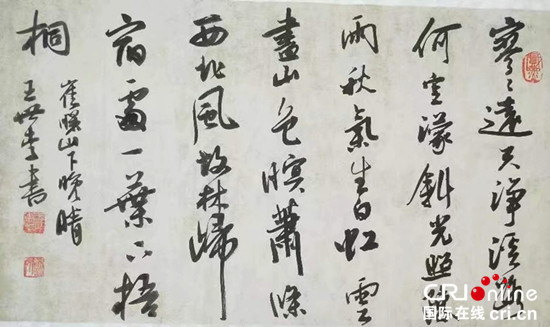 寥々遠天淨溪路
何空濛斜光照疏
雨秋氣生白虹雲
盡山色暝蕭條
西北風故林歸
宿處一葉下梧
桐
崔曙山下晚晴
王世 書
CRI Online
国际在线 cri.cn